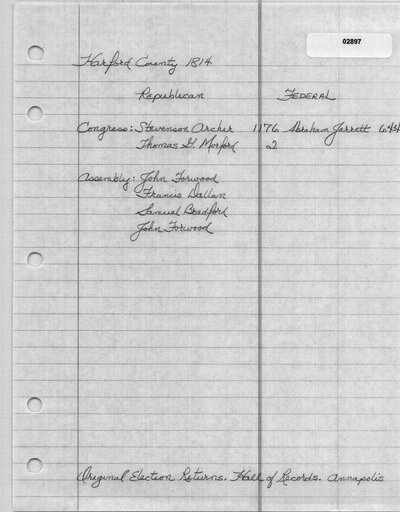 02897
Harford County 1814
Republican FEDERAL
Congress: Stevenson Archer 1176 Abraham Jarrett 644
Thomas G. Morford 2
Assembly: John Forwood
Francis Dallam
Samuel Bradford
John Forwood
Original Election Returns. Hall of Records. Annapolis